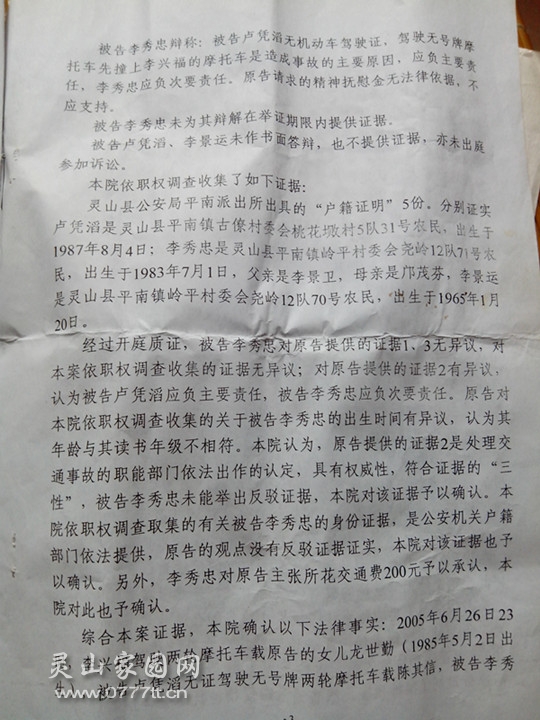 被告李秀忠辩称：被告卢凭滔无机动车驾驶证，驾驶无号牌摩
托车先撞上李兴福的摩托车是造成事故的主要原因，应负主要责
任，李秀忠应负次要责任。原告请求的精神抚慰金无法律依据，不
应支持。
被告李秀忠未为其辩解在举证期限内提供证据。
被告卢凭滔、李景运未作书面答辩，也不提供证据，亦未出庭
参加诉讼。
本院依职权调查收集了如下证据：
灵山县公安局平南派出所出具的“户籍证明”5份。分别证实
卢凭滔是灵山县平南镇古僚村委会桃花坳村5队31号农民，出生于
1987年8月4日；李秀忠是灵山县平南镇岭平村委会尧岭12队71号农
民，出生于1983年7月1日，父亲是李景卫，母亲是邝茂芬，李景运
是灵山县平南镇岭平村委会尧岭12队70号农民，出生于1965年1月
20日。
经过开庭质证，被告李秀忠对原告提供的证据1、3无异议，对
本案依职权调查收集的证据无异议；对原告提供的证据2有异议，
认为被告卢凭滔应负主要责任，被告李秀忠应负次要责任。原告对
本院依职权调查收集的关于被告李秀忠的出生时间有异议，认为其
年龄与其读书年级不相符。本院认为，原告提供的证据2是处理交
通事故的职能部门依法出作的认定，具有权威性，符合证据的“三
性”，被告李秀忠未能举出反驳证据，本院对该证据予以确认。本
院依职权调查取集的有关被告李秀忠的身份证据，是公安机关户籍
部门依法提供，原告的观点没有反驳证据证实，本院对该证据也予
以确认。另外，李秀忠对原告主张所花交通费200元予以承认，本
院对此也予确认。
综合本案证据，本院确认以下法律事实：2005年6月26日23
李兴福驾驶两轮摩托车载原告的女儿龙世勤（1985年5月2日出
被告卢凭滔无证驾驶无号牌两轮摩托车载陈其信，被告李秀
灵山家园网
www.0777it.cn